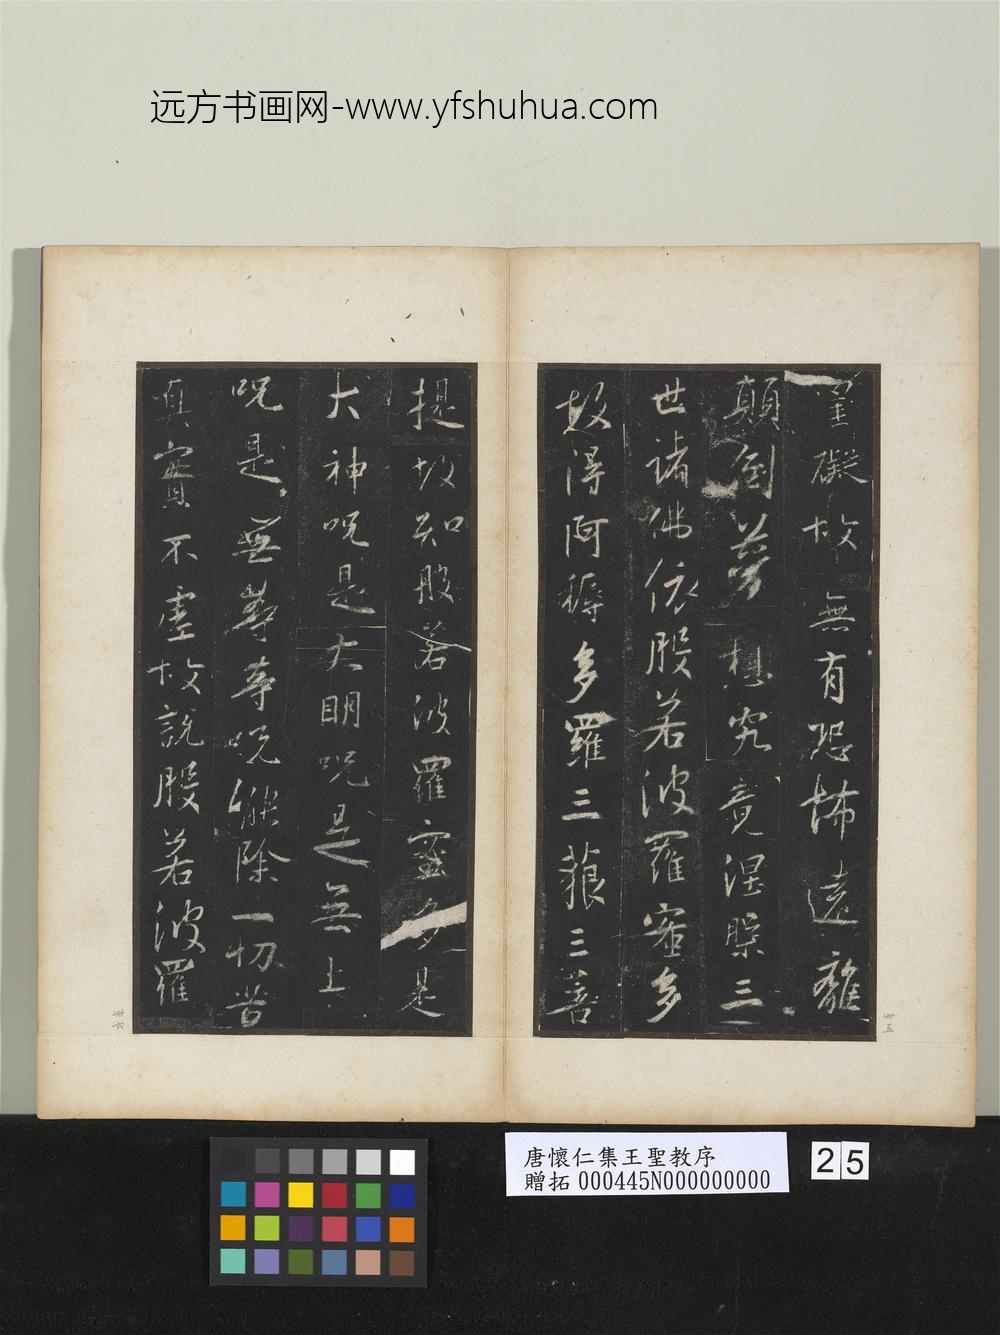 远方书画网-www.yfshuhua.com
罣礙故無有恐怖遠離
顛倒夢想究竟涅槃三
世諸佛依般若波羅蜜多
故得阿耨多羅三藐三菩
提故知般若波羅蜜多是
大神呪是大明呪是無上
呪是無等等呪能除一切苦
真實不虛故說般若波羅
唐懷仁集王聖教序
贈拓 000445N000000000
25